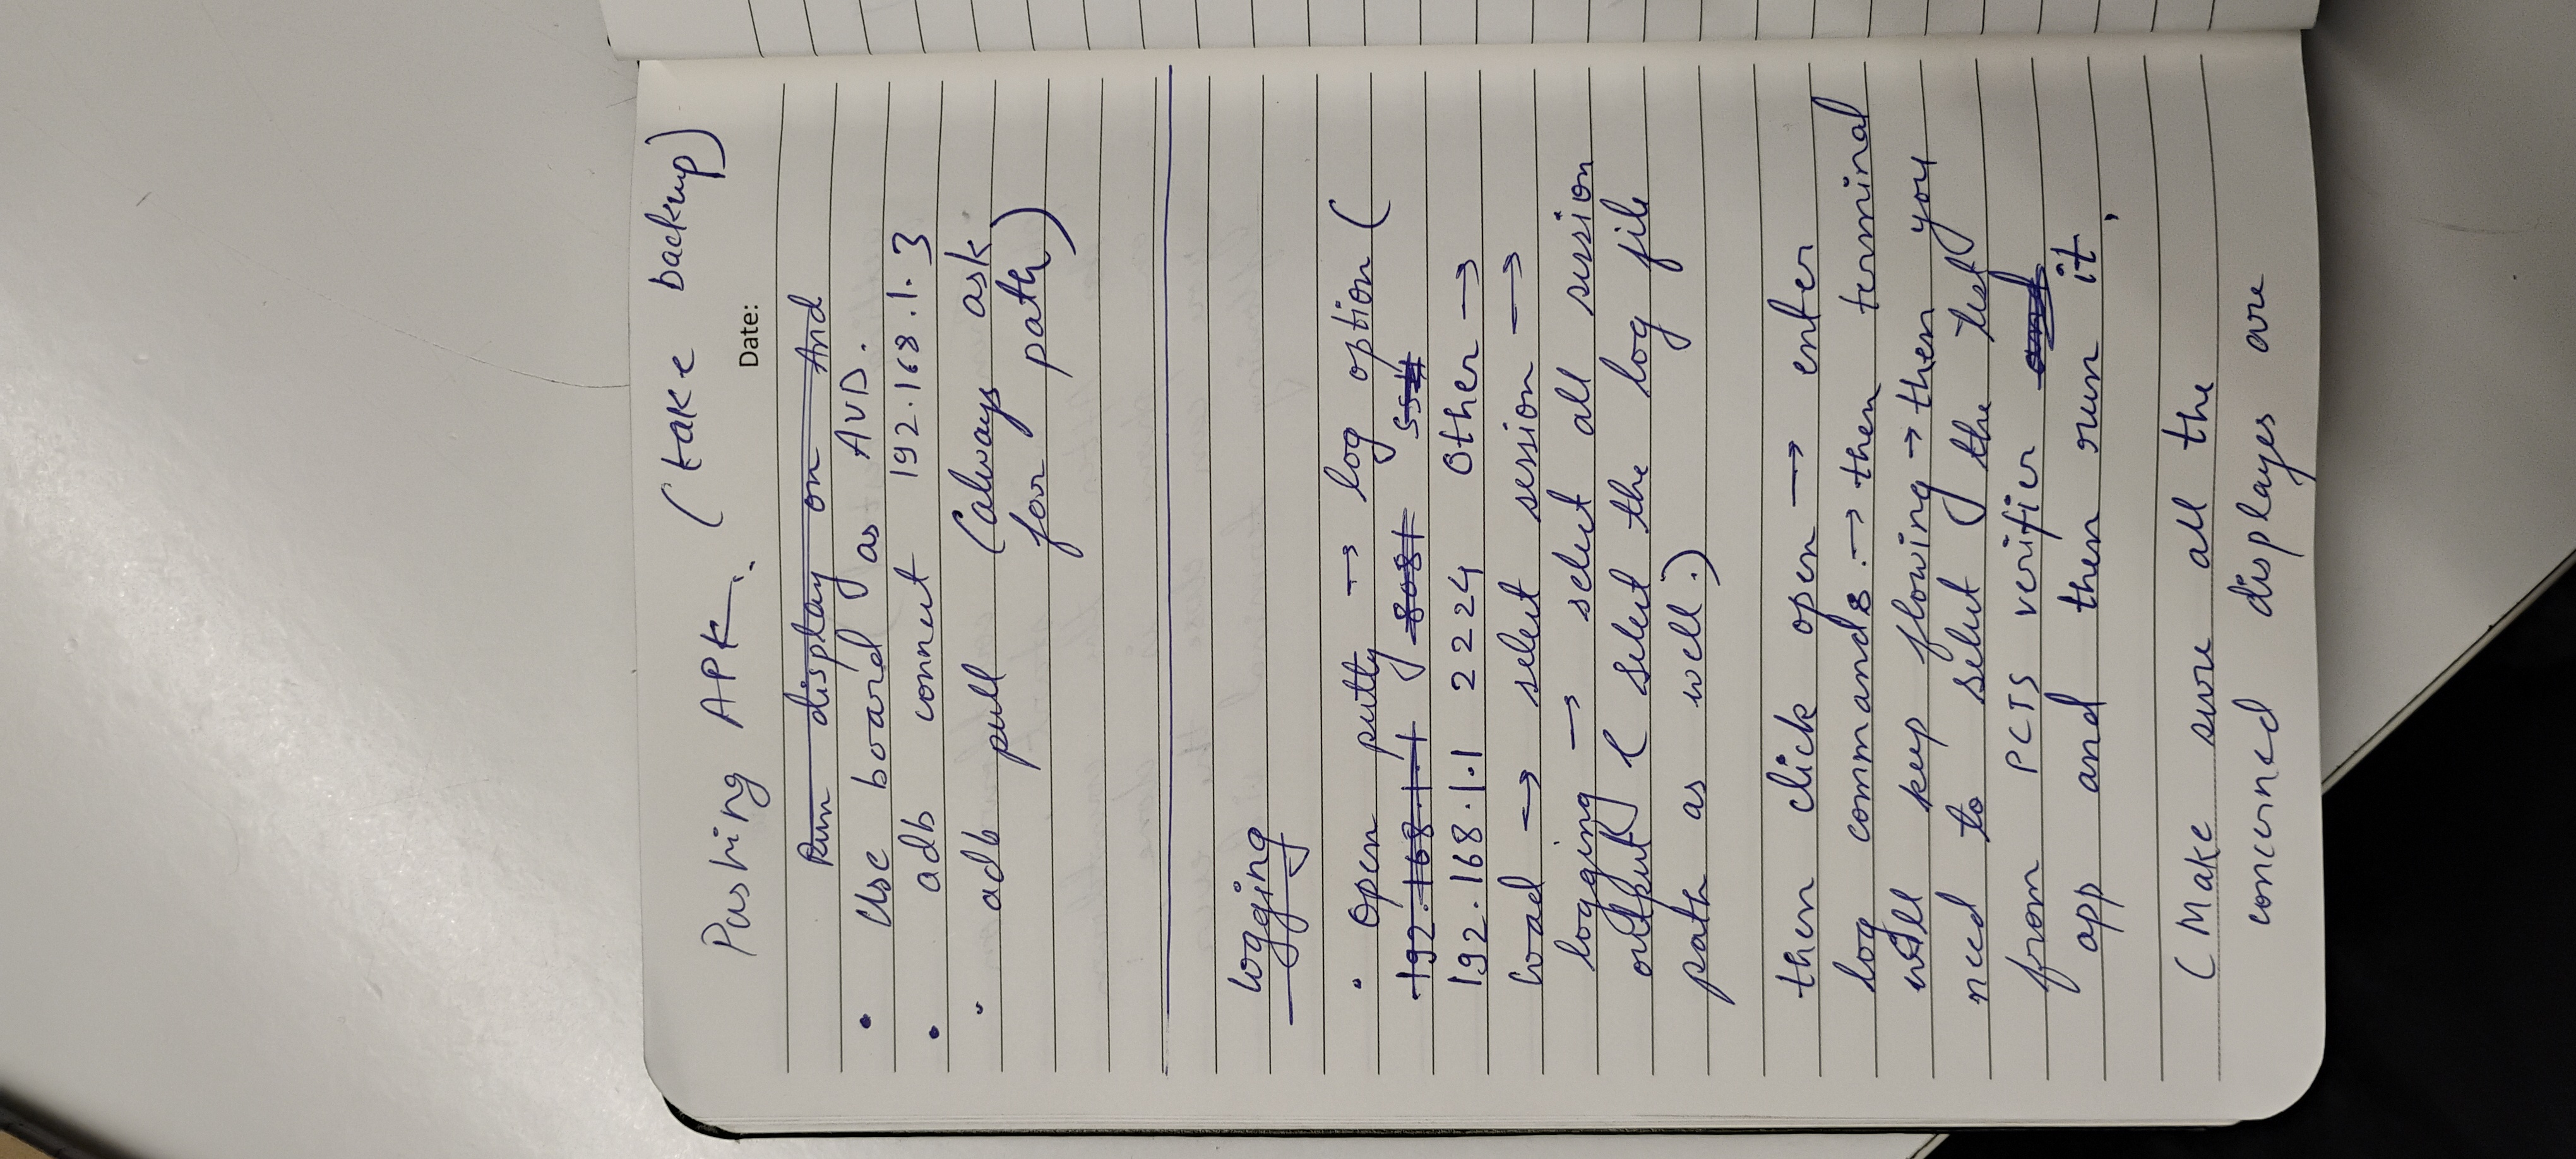 Pushing APK. (take backup)
Date:
Run display on And
• Use board as AVD.
• adb connect 192.168.1.3
• adb pull (always ask
for path)
logging
• Open putty → log option (
192.168.1.1 SSH
192.168.1.1 2224 Other →
load → select session →
logging → select all session
output (select the log file
path as well.)
then click open → enter
log commands. → then terminal
will keep flowing → then you
need to select the test
from PCTS verifier and
app and then run it.
(Make sure all the
concerned displayes are